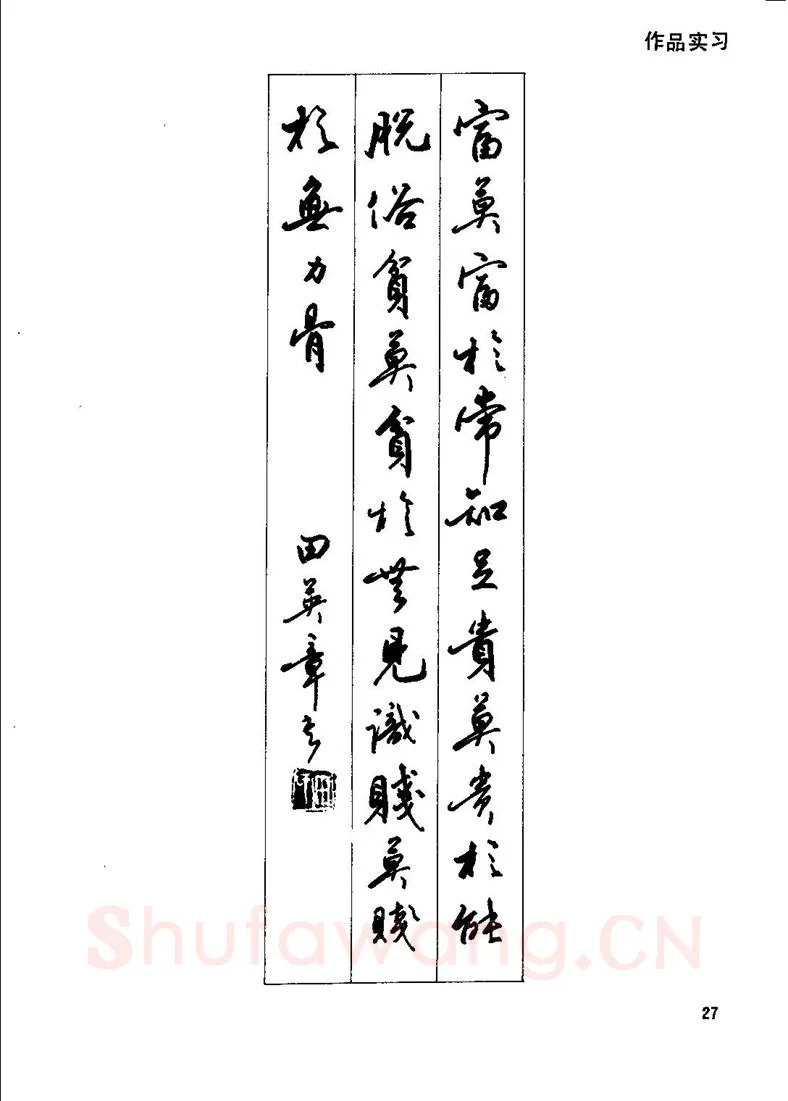 作品实习
富莫富於常知足貴莫貴於能
脱俗貧莫貧於無見識賤莫賤
於無力骨
田英章书
Shufawang.CN
27